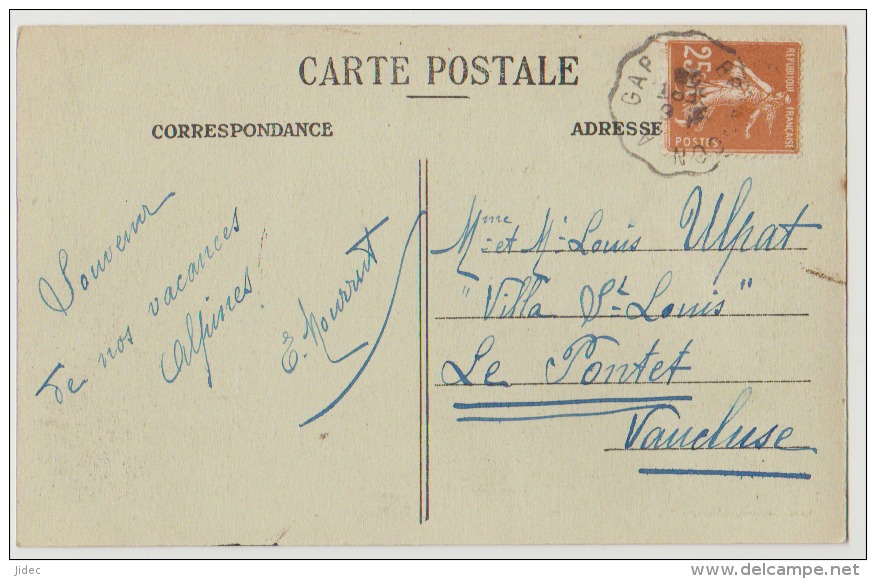 CARTE POSTALE
CORRESPONDANCE
ADRESSE
25c
REPUBLIQUE FRANÇAISE
POSTES
GAP A
Souvenir
de nos vacances
Alpines
E. Mourrut
Mme et Mr Louis Ulpat
"Villa St Louis"
Le Pontet
Vaucluse
Jidec
www.delcampe.net